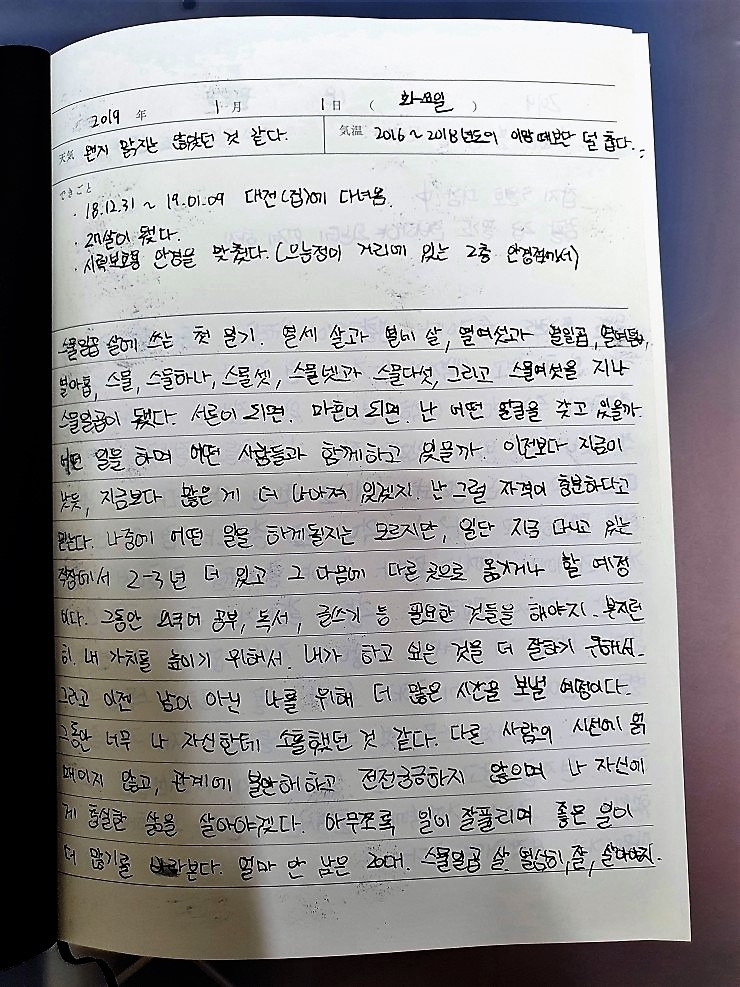 2019 年 1 月 1 日 ( 화요일 )
天気 왠지 맑지는 않았던 것 같다. 気温 2016 ~ 2018년도의 이맘때보단 덜 춥다.
できごと
· 18.12.31 ~ 19.01.09 대전(집)에 다녀옴.
· 27살이 됐다.
· 시력보호용 안경을 맞췄다. (으능정이 거리에 있는 2층 안경점에서)
스물일곱 살에 쓰는 첫 일기. 열세 살과 열네 살, 열여섯과 열일곱, 열여덟,
열아홉, 스물, 스물하나, 스물셋, 스물넷과 스물다섯, 그리고 스물여섯을 지나
스물일곱이 됐다. 서른이 되면. 마흔이 되면. 난 어떤 얼굴을 갖고 있을까
어떤 일을 하며 어떤 사람들과 함께하고 있을까. 이전보다 지금이
낫듯, 지금보다 많은 게 더 나아져 있겠지. 난 그럴 자격이 충분하다고
믿는다. 나중에 어떤 일을 하게될지는 모르지만, 일단 지금 다니고 있는
직장에서 2-3년 더 있고 그 다음에 다른 곳으로 옮기거나 할 예정
이다. 그동안 외국어 공부, 독서, 글쓰기 등 필요한 것들을 해야지. 부지런
히. 내 가치를 높이기 위해서. 내가 하고 싶은 것을 더 잘하기 위해서.
그리고 이젠 남이 아닌 나를 위해 더 많은 시간을 보낼 예정이다.
그동안 너무 나 자신한테 소홀했던 것 같다. 다른 사람의 시선에 얽
매이지 않고, 관계에 불안해하고 전전긍긍하지 않으며 나 자신에
게 충실한 삶을 살아야겠다. 아무쪼록 일이 잘풀리며 좋은 일이
더 많기를 바라본다. 얼마 안 남은 20대. 스물일곱 살. 열심히, 잘, 살아야지.